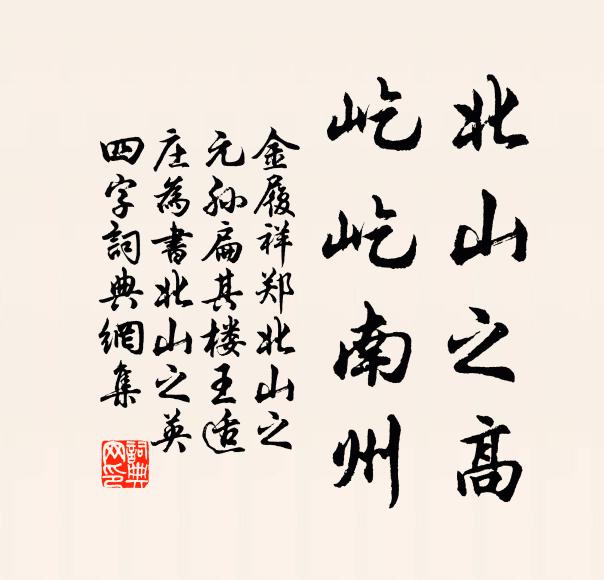 北山之高
屹屹南州
金履祥郑北山之
元孙扁其楼王适
庄為書北山之英
四字詞典網集
詞典
网印